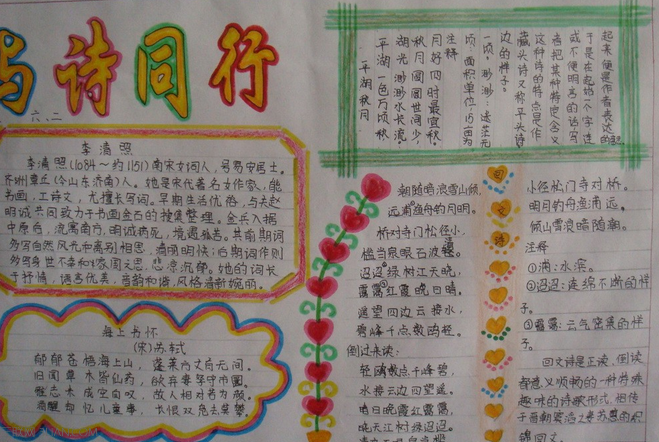 与诗同行
六、二
李清照
李清照(1084～约1151)南宋女词人,号易安居士。
齐州章丘(今山东济南)人。她是宋代著名女作家,能
书画,工诗文,尤擅长写词。早期生活优裕,与夫赵
明诚共同致力于书画金石的搜集整理。金兵入据
中原后,流寓南方,明诚病死,境遇孤苦。其前期词
多写自然风光和离别相思,清丽明快;后期词作则
多写身世不幸和对家国之思,悲凉沉郁。她的词长
于抒情,语言优美,音韵和谐,风格清新婉丽。
海上书怀
(宋)苏轼
郁郁苍梧海上山,蓬莱方丈有无间。
旧闻草木皆仙药,欲弃妻孥守市圜。
起便是作者表达的
于是在起始六个字连
或不便明言的话写
者把某种特定含义
这种诗的特点是作
藏头诗又称平头诗
边的样子。
一顷。渺渺:述茫无
顷:面积单位,15亩为
注释
月好四时最宜秋。
秋月圆圆世间少,
湖光渺渺水长流。
平湖一色万顷秋,
平湖秋月
朝随暗浪雪山倾,
远浦渔舟钓月明。
桥对寺门松径小,
槛当泉眼石波清。
迢迢绿树江天晓,
霭霭红霞晚日晴。
遥望四边云接水,
碧峰千点数鸥轻。
倒过来读:
轻鸥数点千峰碧,
水接云边四望遥。
晴日晚霞红霭霭,
晓天江树绿迢迢。
回
文
诗
小径松门寺对桥。
明月钓舟渔浦远,
倾山雪浪暗随潮。
注释
①浦:水滨。
②迢迢:连绵不断的样
子。
③霭霭:云气密集的样
子。
回文诗是正读、倒读
都意义顺畅的一种特殊
趣味的诗歌形式,相传
锦回文。